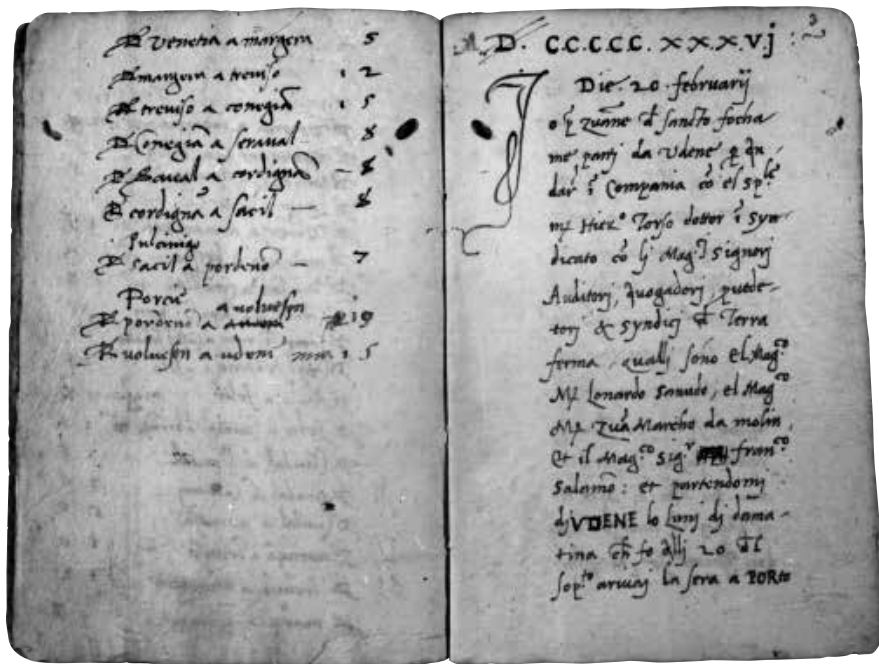 D venetia a margera 5
D margera a treviso 1 2
D treviso a conegiã 1 5
D Conegiã a seraval 8
D Seraval a cordignã 8
D cordignã a sacil 8
D sacil a pordenõ 7
Porcia a volvesõ
D pordenõ a 19
D volvesõ a udene mia 1 5
3
M. D. C.C.C.C.C. x x x v j
Die. 20. februarij
Io Zuãne d̃ sancto focha
me partj da Udene
dar ĩ Compania cõ el sp.le
mẹ Hier.o Torso dottor ĩ Syn-
dicato cõ lj Mag.ci Signorj
Auditorj, Avogadorj, pvede-
torj & Syndicj d̃ Terra
ferma, quallj sono El Mag.co
Mẹ Lonardo Sanudo, el Mag.co
Mẹ Zuã Marcho da molin,
et il Mag.co Sig.r fran.co
Salamõ: et partendomj
dj VDENE lo Lunj dj doma-
tina ch̃ fo allj 20 d̃l
sop.to arivaj la sera a PORto